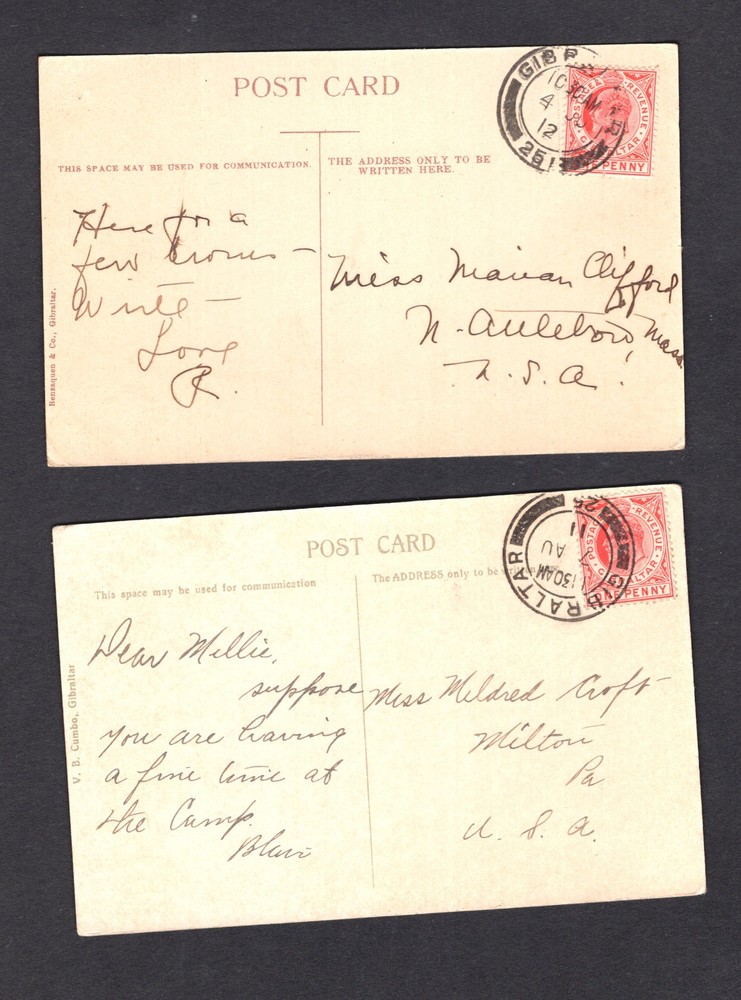 POST CARD
THIS SPACE MAY BE USED FOR COMMUNICATION.
THE ADDRESS ONLY TO BE
WRITTEN HERE.
Here for a
few hours –
Write –
Love
R.
Miss Marian Clifford
N. Attleboro, Mass.
U. S. A.
Benzaquen & Co., Gibraltar.
GIB
10 30 AM
4
12
251
& REVENUE
GIBRALTAR
PENNY
POST CARD
This space may be used for communication
The ADDRESS only to be written
Dear Millie,
suppose
you are having
a fine time at
the Camp.
Blair
Miss Mildred Croft
Milton
Pa
U. S. A.
V. B. Cumbo, Gibraltar
GIBRALTAR
11 30 AM
AU
11
POSTAGE & REVENUE
GIBRALTAR
PENNY